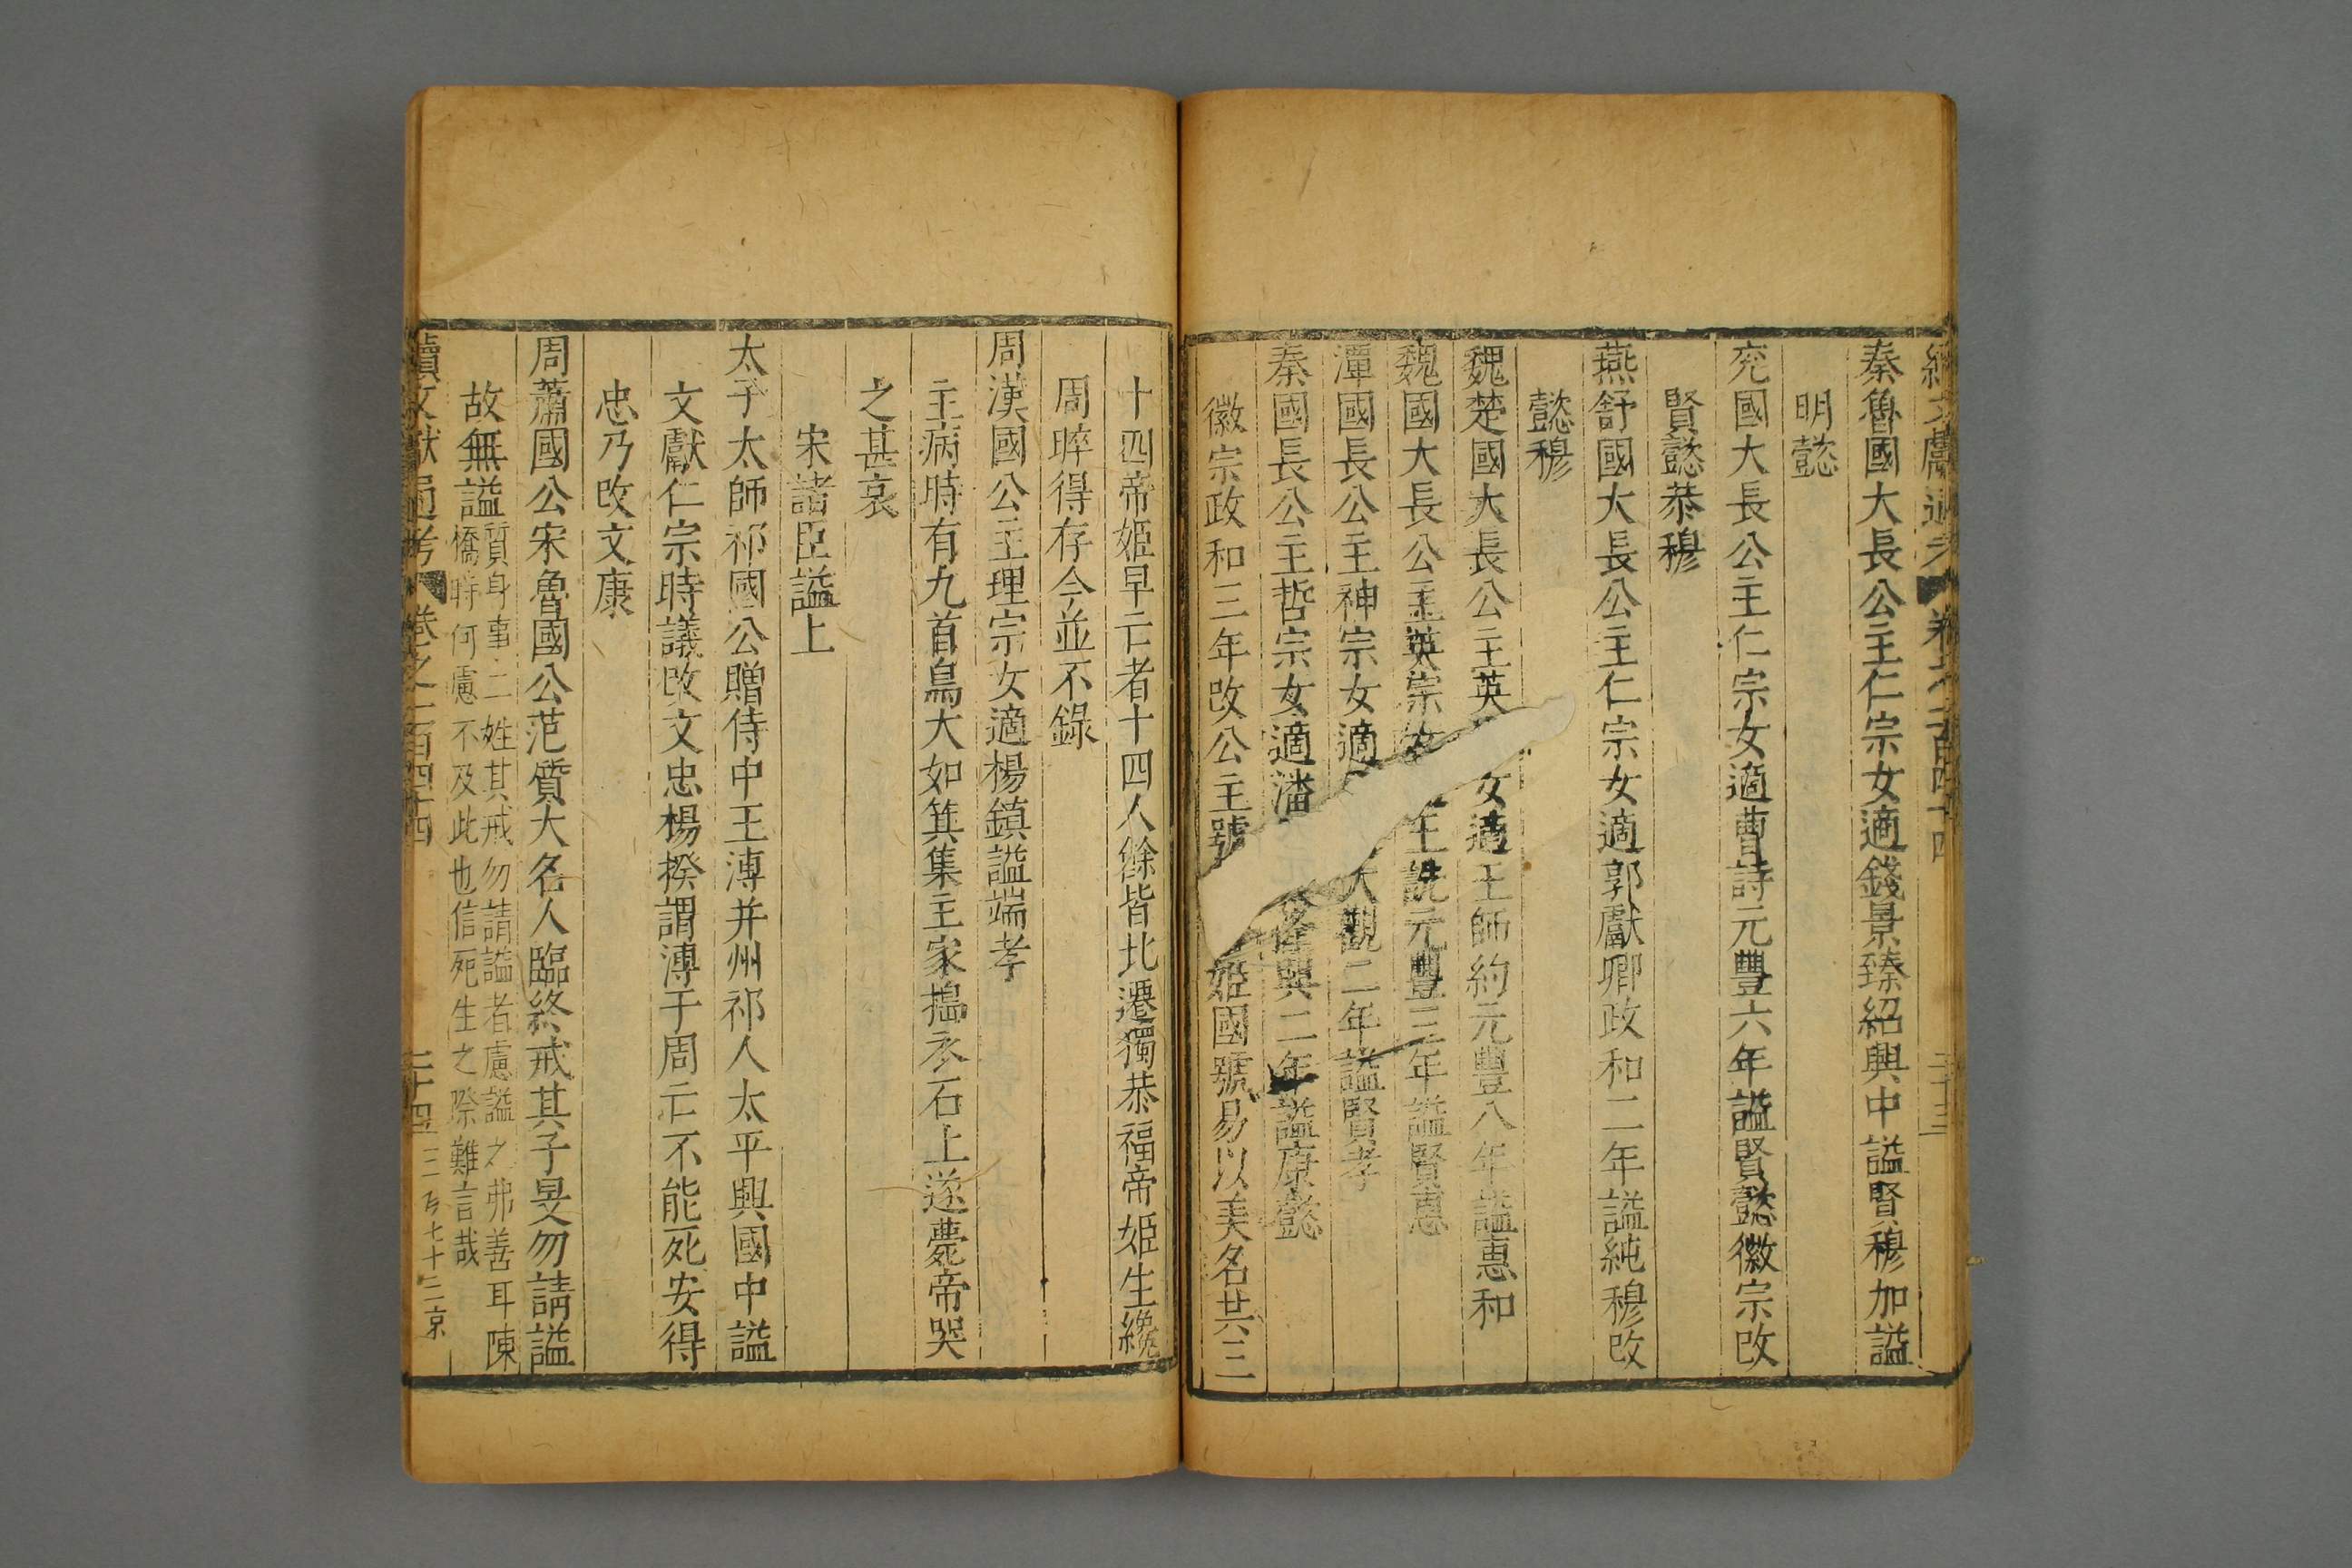 秦魯國大長公主仁宗女適錢景臻紹興中謚賢穆加謚
明懿
兖國大長公主仁宗女適曹詩元豐六年謚賢懿徽宗改
賢懿恭穆
燕舒國大長公主仁宗女適郭獻卿政和二年謚純穆改
懿穆
魏楚國大長公主英女適王師約元豐八年謚惠和
魏國大長公主英宗女王詵元豐三年謚賢惠
潭國長公主神宗女適大觀二年謚賢孝
秦國長公主哲宗女適潘隆興二年謚康懿
徽宗政和三年改公主號姬國號易以美名共三
十四帝姬早亡者十四人餘皆北遷獨恭福帝姬生纔
周晬得存今並不錄
周漢國公主理宗女適楊鎮謚端孝
主病時有九首鳥大如箕集主家搗衣石上遂薨帝哭
之甚哀
宋諸臣謚上
太子太師祁國公贈侍中王溥并州祁人太平興國中謚
文獻仁宗時議改文忠楊揆謂溥于周亡不能死安得
忠乃改文康
周蕭國公宋魯國公范質大名人臨終戒其子旻勿請謚
故無謚質身事二姓其戒勿請謚者慮謚之弗善耳陳
橋時何慮不及此也信死生之際難言哉
續文獻通考 卷之二百四十四 二十四 三百七十二京